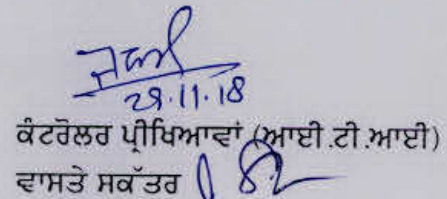 29.11.18
ਕੰਟਰੋਲਰ ਪ੍ਰੀਖਿਆਵਾਂ (ਆਈ.ਟੀ.ਆਈ)
ਵਾਸਤੇ ਸਕੱਤਰ